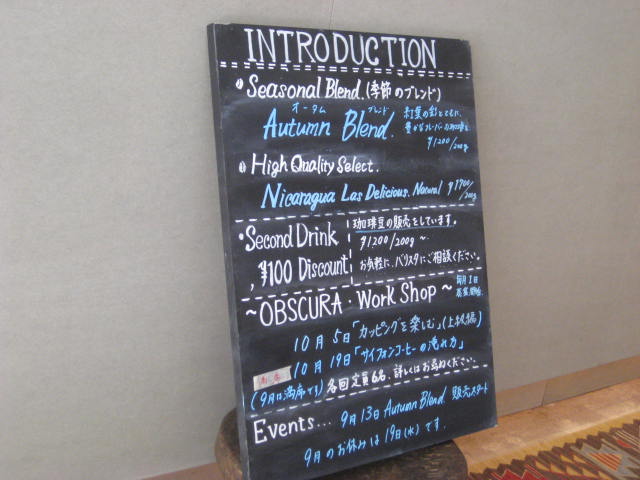 INTRODUCTION
Seasonal Blend. (季節のブレンド)
オータム ブレンド
Autumn Blend.
紅葉の彩とともに、
豊かなフレーバー
¥1200/200g
High Quality Select.
Nicaragua Las Delicious. Natural ¥1700/200g
・Second Drink
, ¥100 Discount
珈琲豆の販売をしています。
¥1200/200g ~
お気軽に、バリスタにご相談ください。
~OBSCURA・Work Shop~
毎月1日
10月5日「カッピングを楽しむ」(上級編)
10月19日「サイフォンコーヒーの淹れ方」
満席
(9月は満席です) 各回定員6名、詳しくはお尋ねください。
Events... 9月13日 Autumn Blend. 販売スタート
9月のお休みは19日(水)です.